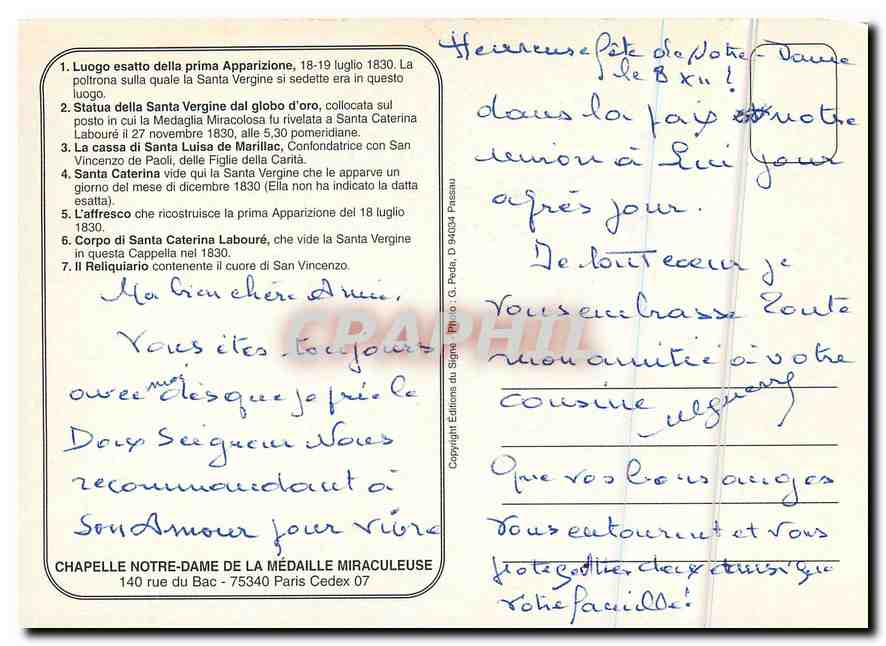 1. Luogo esatto della prima Apparizione, 18-19 luglio 1830. La
poltrona sulla quale la Santa Vergine si sedette era in questo
luogo.
2. Statua della Santa Vergine dal globo d'oro, collocata sul
posto in cui la Medaglia Miracolosa fu rivelata a Santa Caterina
Labouré il 27 novembre 1830, alle 5,30 pomeridiane.
3. La cassa di Santa Luisa de Marillac, Confondatrice con San
Vincenzo de Paoli, delle Figlie della Carità.
4. Santa Caterina vide qui la Santa Vergine che le apparve un
giorno del mese di dicembre 1830 (Ella non ha indicato la datta
esatta).
5. L'affresco che ricostruisce la prima Apparizione del 18 luglio
1830.
6. Corpo di Santa Caterina Labouré, che vide la Santa Vergine
in questa Cappella nel 1830.
7. Il Reliquiario contenente il cuore di San Vincenzo.
Ma bien chère Amie,
Vous êtes toujours
avec moi dès que je prie le
Doux Seigneur Nous
recommandant à
Son Amour pour vivre
CHAPELLE NOTRE-DAME DE LA MÉDAILLE MIRACULEUSE
140 rue du Bac - 75340 Paris Cedex 07
Copyright Éditions du Signe - Photo : G. Peda, D 94034 Passau
CPAPHIL
Heureuse fête de Notre-Dame
le 8 XII !
dans la paix notre
union à Lui jour
après jour.
De tout coeur je
vous embrasse Toute
mon amitié à votre
cousine
Que vos bons anges
vous entourent et vous
protègent deux ainsi que
votre famille !